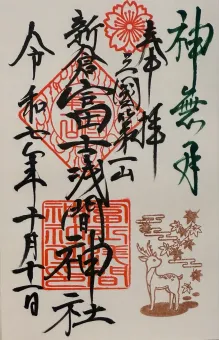 神無月
奉拝
三國第一山
新倉富士浅間神社
令和六年十月十一日